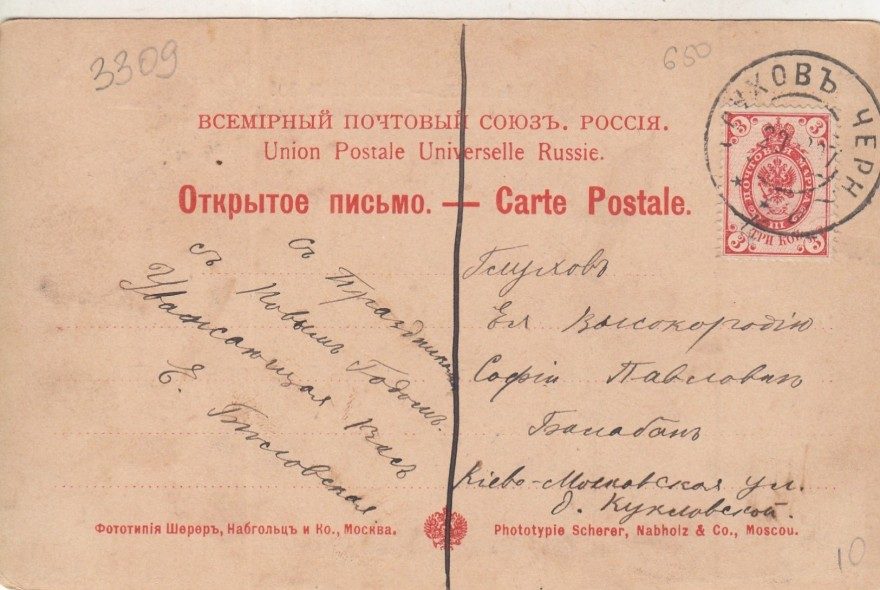 3309
650
ГЛУХОВЪ ЧЕРН.
ВСЕМІРНЫЙ ПОЧТОВЫЙ СОЮЗЪ. РОССІЯ.
Union Postale Universelle Russie.
Открытое письмо. — Carte Postale.
3 3
ПОЧТОВАЯ МАРКА
ТРИ КОП.
3 3
съ Праздникомъ
съ Новымъ Годомъ.
Уважающая Васъ
Е.
Глуховъ
Ея Высокородію
Софіи Павловнѣ
Балабанъ
Кіево-Московская ул.
д. Кукловской.
Фототипія Шереръ, Набгольцъ и Ко., Москва.
Phototypie Scherer, Nabholz & Co., Moscou.
10